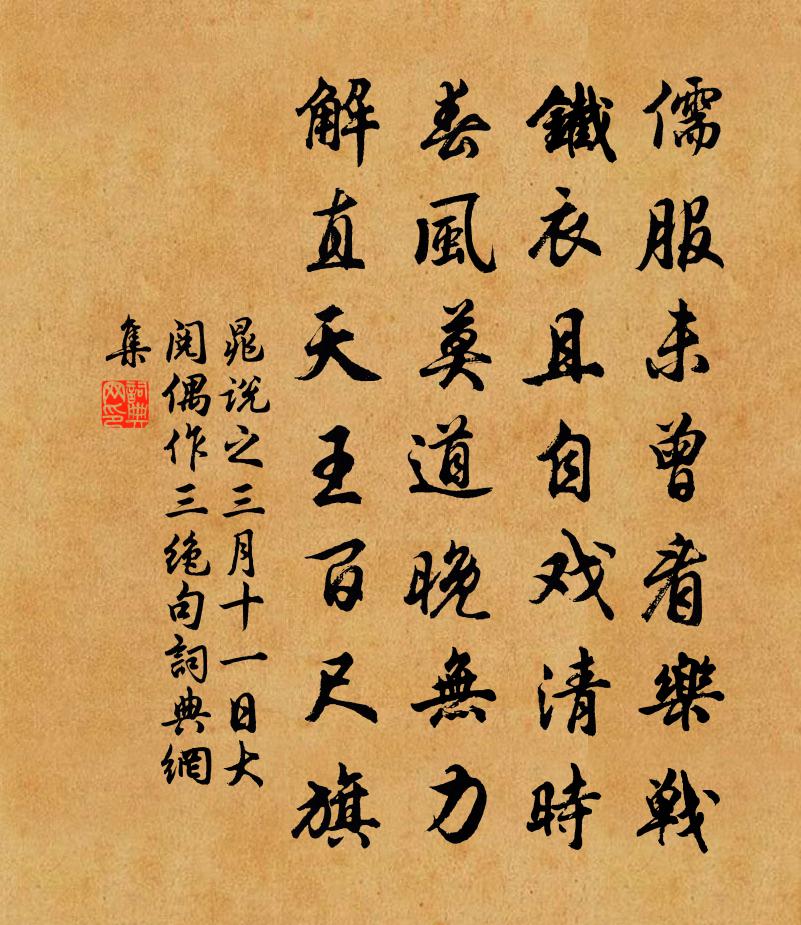 儒服未曾看樂戰
鐵衣且自戏清時
春風莫道晚無力
解直天王百尺旗
晁說之三月十一日大
閱偶作三绝句詞典網
集
詞典
网印